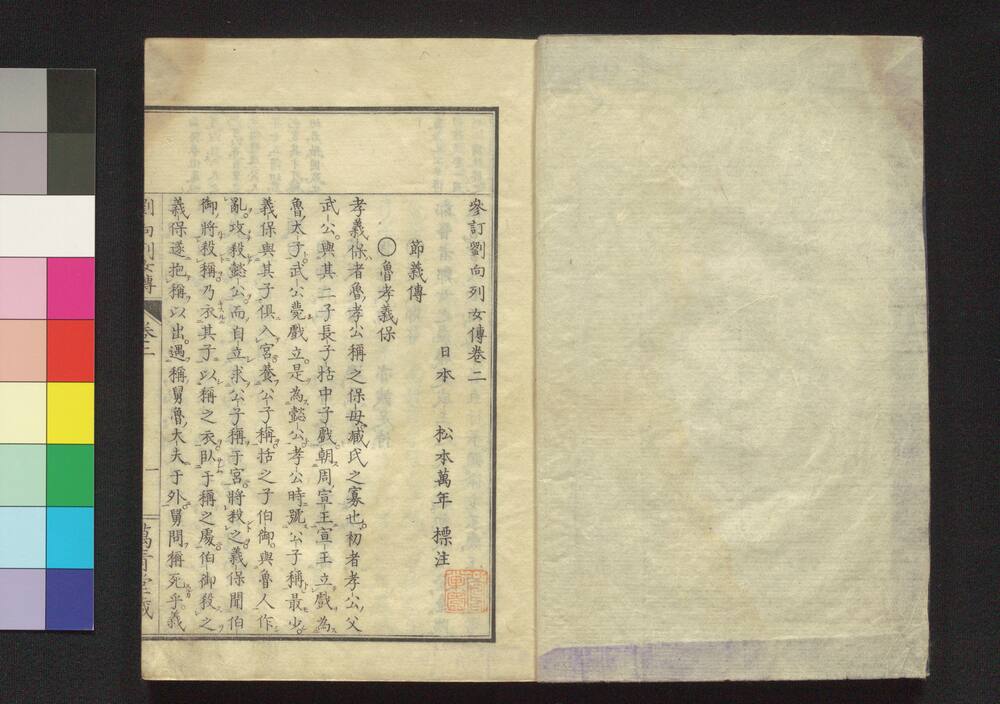 參訂劉向列女傳卷二
日本 松本萬年 標注
節義傳
〇魯孝義保
孝義保者魯孝公稱之保母臧氏之寡也初者孝公父
武公與其二子長子括中子戲朝周宣王宣王立戲為
魯太子武公薨戲立是為懿公孝公時號公子稱最少
義保與其子俱入宮養公子稱括之子伯御與魯人作
亂攻殺懿公而自立求公子稱于宮將殺之義保聞伯
御將殺稱乃衣其子以稱之衣臥于稱之處伯御殺之
義保遂抱稱以出遇稱舅魯大夫于外舅問稱死乎義
劉向列女傳 卷二 一 萬青堂藏